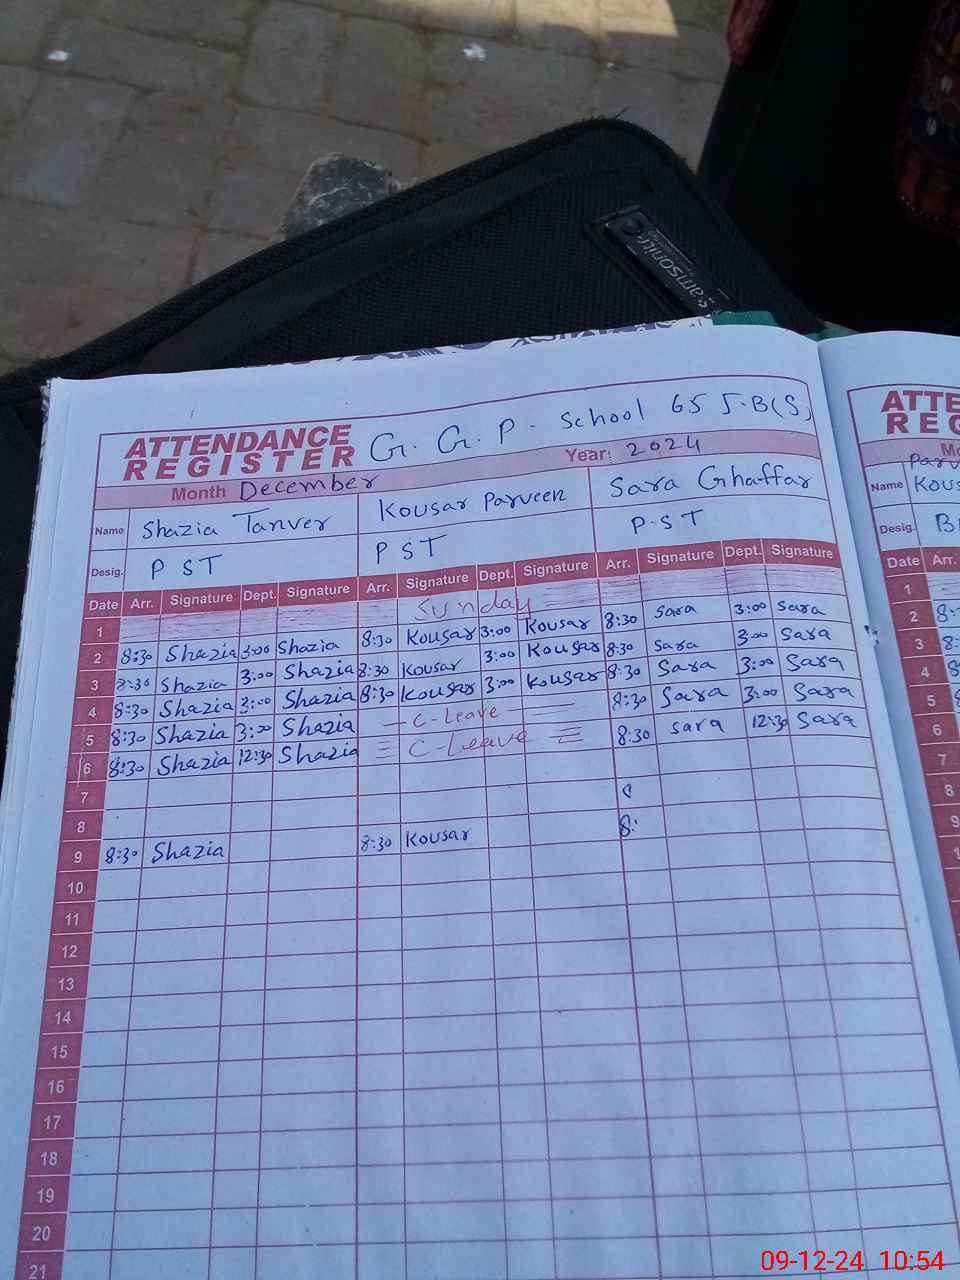 amsonite
ATTENDANCE REGISTER G. G. P. School 65 5-B(S)
Month December Year: 2024
Name Shazia Tanver Kousar Parveen Sara Ghaffar
Desig. P S T P S T P-S T
Date Arr. Signature Dept. Signature Arr. Signature Dept. Signature Arr. Signature Dept. Signature
1 Sunday
2 8:30 Shazia 3:00 Shazia 8:30 Kousar 3:00 Kousar 8:30 Sara 3:00 Sara
3 8:30 Shazia 3:00 Shazia 8:30 Kousar 3:00 Kousar 8:30 Sara 3:00 Sara
4 8:30 Shazia 3:00 Shazia 8:30 Kousar 3:00 Kousar 8:30 Sara 3:00 Sara
5 8:30 Shazia 3:00 Shazia C-Leave 8:30 Sara 3:00 Sara
6 8:30 Shazia 12:30 Shazia C-Leave 8:30 Sara 12:30 Sara
7
8
9 8:30 Shazia 8:30 Kousar 8:
10
11
12
13
14
15
16
17
18
19
20
21
ATTE
REG
Mo
Parv
Name Kous
Desig. B
Date Arr.
1
2 8:
3 8:
4 8
5 8
6
7
8
9
09-12-24 10:54